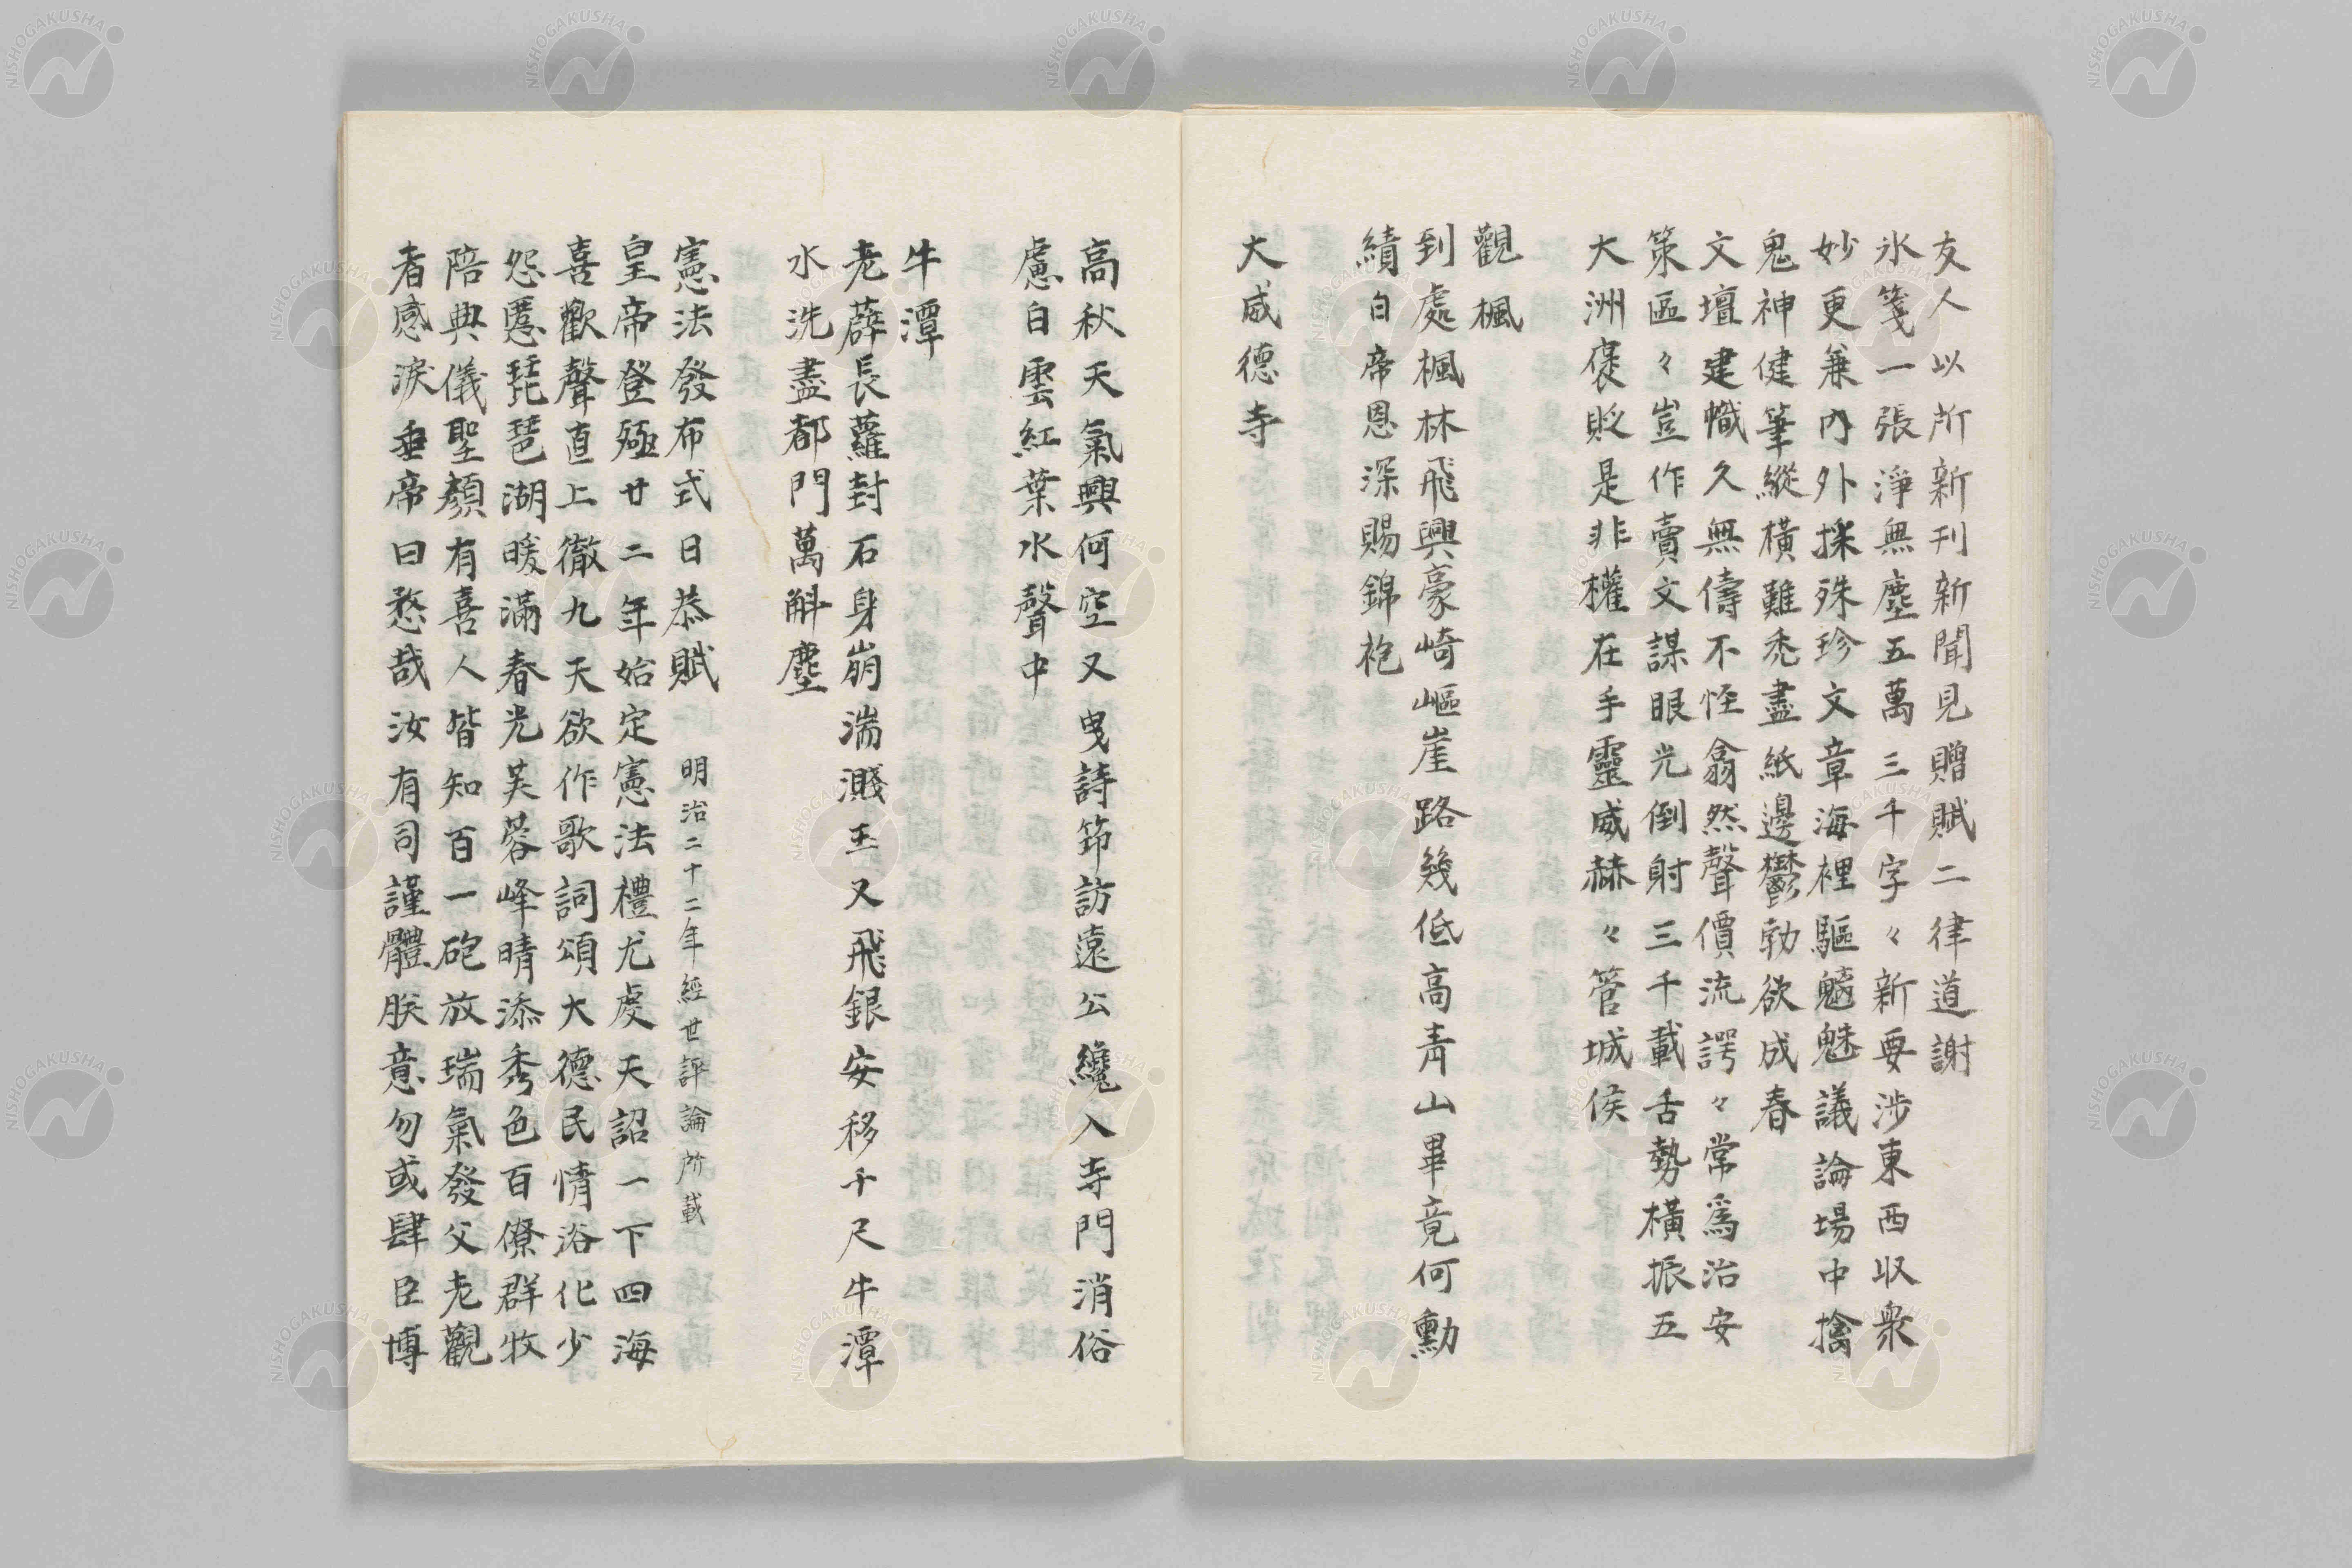 友人以所新刊新聞見贈賦二律道謝
氷箋一張淨無塵五萬三千字々新要涉東西収衆
妙更兼内外採殊珍文章海裡驅魑魅議論場中擒
鬼神健筆縱橫難禿盡紙邊鬱勃欲成春
文壇建幟久無儔不恠翕然聲價流諤々常爲治安
策區々豈作賣文謀眼光倒射三千載舌勢橫振五
大洲褒貶是非權在手靈威赫々管城侯
觀楓
到處楓林飛興豪崎嶇崖路幾低高青山畢竟何勳
績白帝恩深賜錦袍
大威德寺
高秋天氣興何空又曳詩笻訪遠公纔入寺門消俗
慮白雲紅葉水聲中
牛潭
老薜長蘿封石身崩湍濺玉又飛銀安移千尺牛潭
水洗盡都門萬斛塵
憲法發布式日恭賦 明治二十二年經世評論所載
皇帝登殛廿二年始定憲法禮尤虔天詔一下四海
喜歡聲直上徹九天欲作歌詞頌大德民情浴化少
怨慝琵琶湖暖滿春光芙蓉峰晴添秀色百僚群牧
陪典儀聖顏有喜人皆知百一砲放瑞氣發父老觀
者感淚垂帝曰愁哉汝有司謹體朕意勿或肆臣博
NISHOGAKUSHA